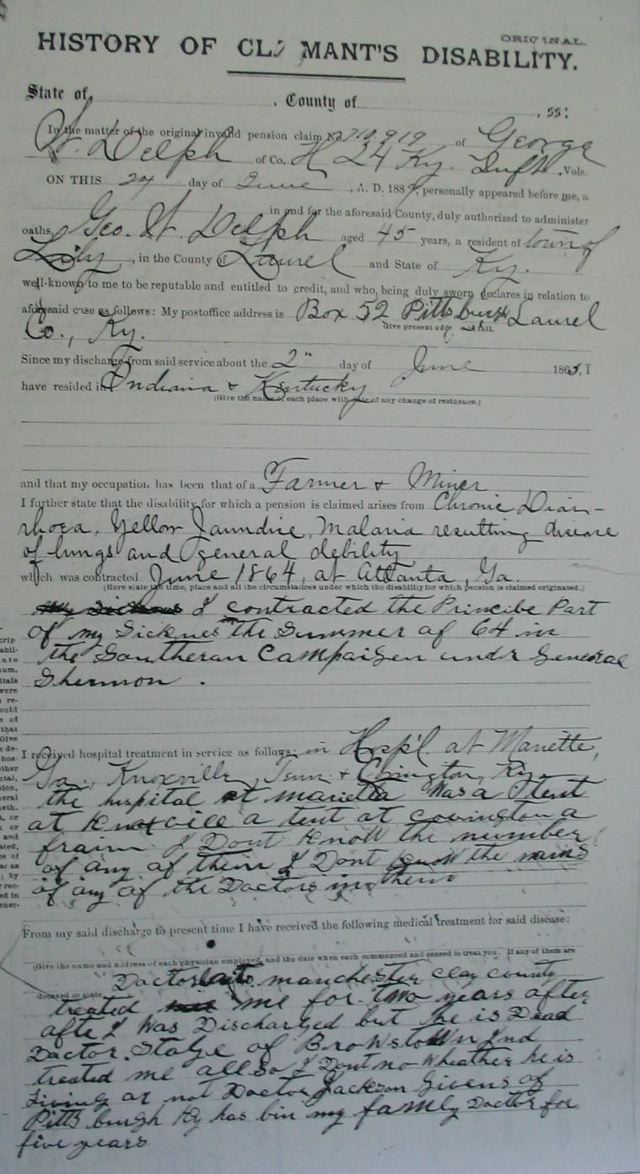 ORIGINAL.
HISTORY OF CLAIMANT'S DISABILITY.
State of , County of , ss:
In the matter of the original invalid pension claim No 710,919 of George
W. Delph of Co. H 24 Ky. Inft. Vols.
ON THIS 24 day of June, A. D. 1889, personally appeared before me, a
in and for the aforesaid County, duly authorized to administer
oaths, Geo. W. Delph aged 45 years, a resident of town of
Lily, in the County of Laurel and State of Ky.
well-known to me to be reputable and entitled to credit, and who, being duly sworn declares in relation to
aforesaid case as follows: My postoffice address is Box 52 Pittsburgh Laurel
Give present address in full.
Co., Ky.
Since my discharge from said service about the 2" day of June 1865. I
have resided in Indiana & Kentucky
(Give the name of each place with date of any change of residence.)
and that my occupation has been that of a Farmer & Miner
I further state that the disability for which a pension is claimed arises from Chronic Diar-
rhoea, Yellow Jaundice, Malaria resulting disease
of lungs and general debility
which was contracted June 1864, at Atlanta, Ga.
(Here state the time, place and all the circumstances under which the disability for which pension is claimed originated.)
I contracted the Principe Part
of my Sicknes the Summer of 64 in
the Southeran Campaigen undr General
Shermon.
I received hospital treatment in service as follows: in Hosp'l at Mariette,
Ga., Knoxville, Tenn & Covington, Ky.
the hospital at marietta Was a tent
at Knoxville a tent at covington a
fraim I Dont Know the number
of any of them I Dont know the naims
of any of the Doctors in them
From my said discharge to present time I have received the following medical treatment for said disease:
(Give the name and address of each physician employed, and the date when each commenced and ceased to treat you. If any of them are
deceased so state.)
Doctor manchester clay county
treated me for two years after
afte I Was Discharged but he is Dead
Doctor Stage of Browstown Ind
treated me allso I Dont no Wheather he is
Living or not Doctor Jackson Givens of
Pittsburgh Ky has bin my family Doctor for
five years